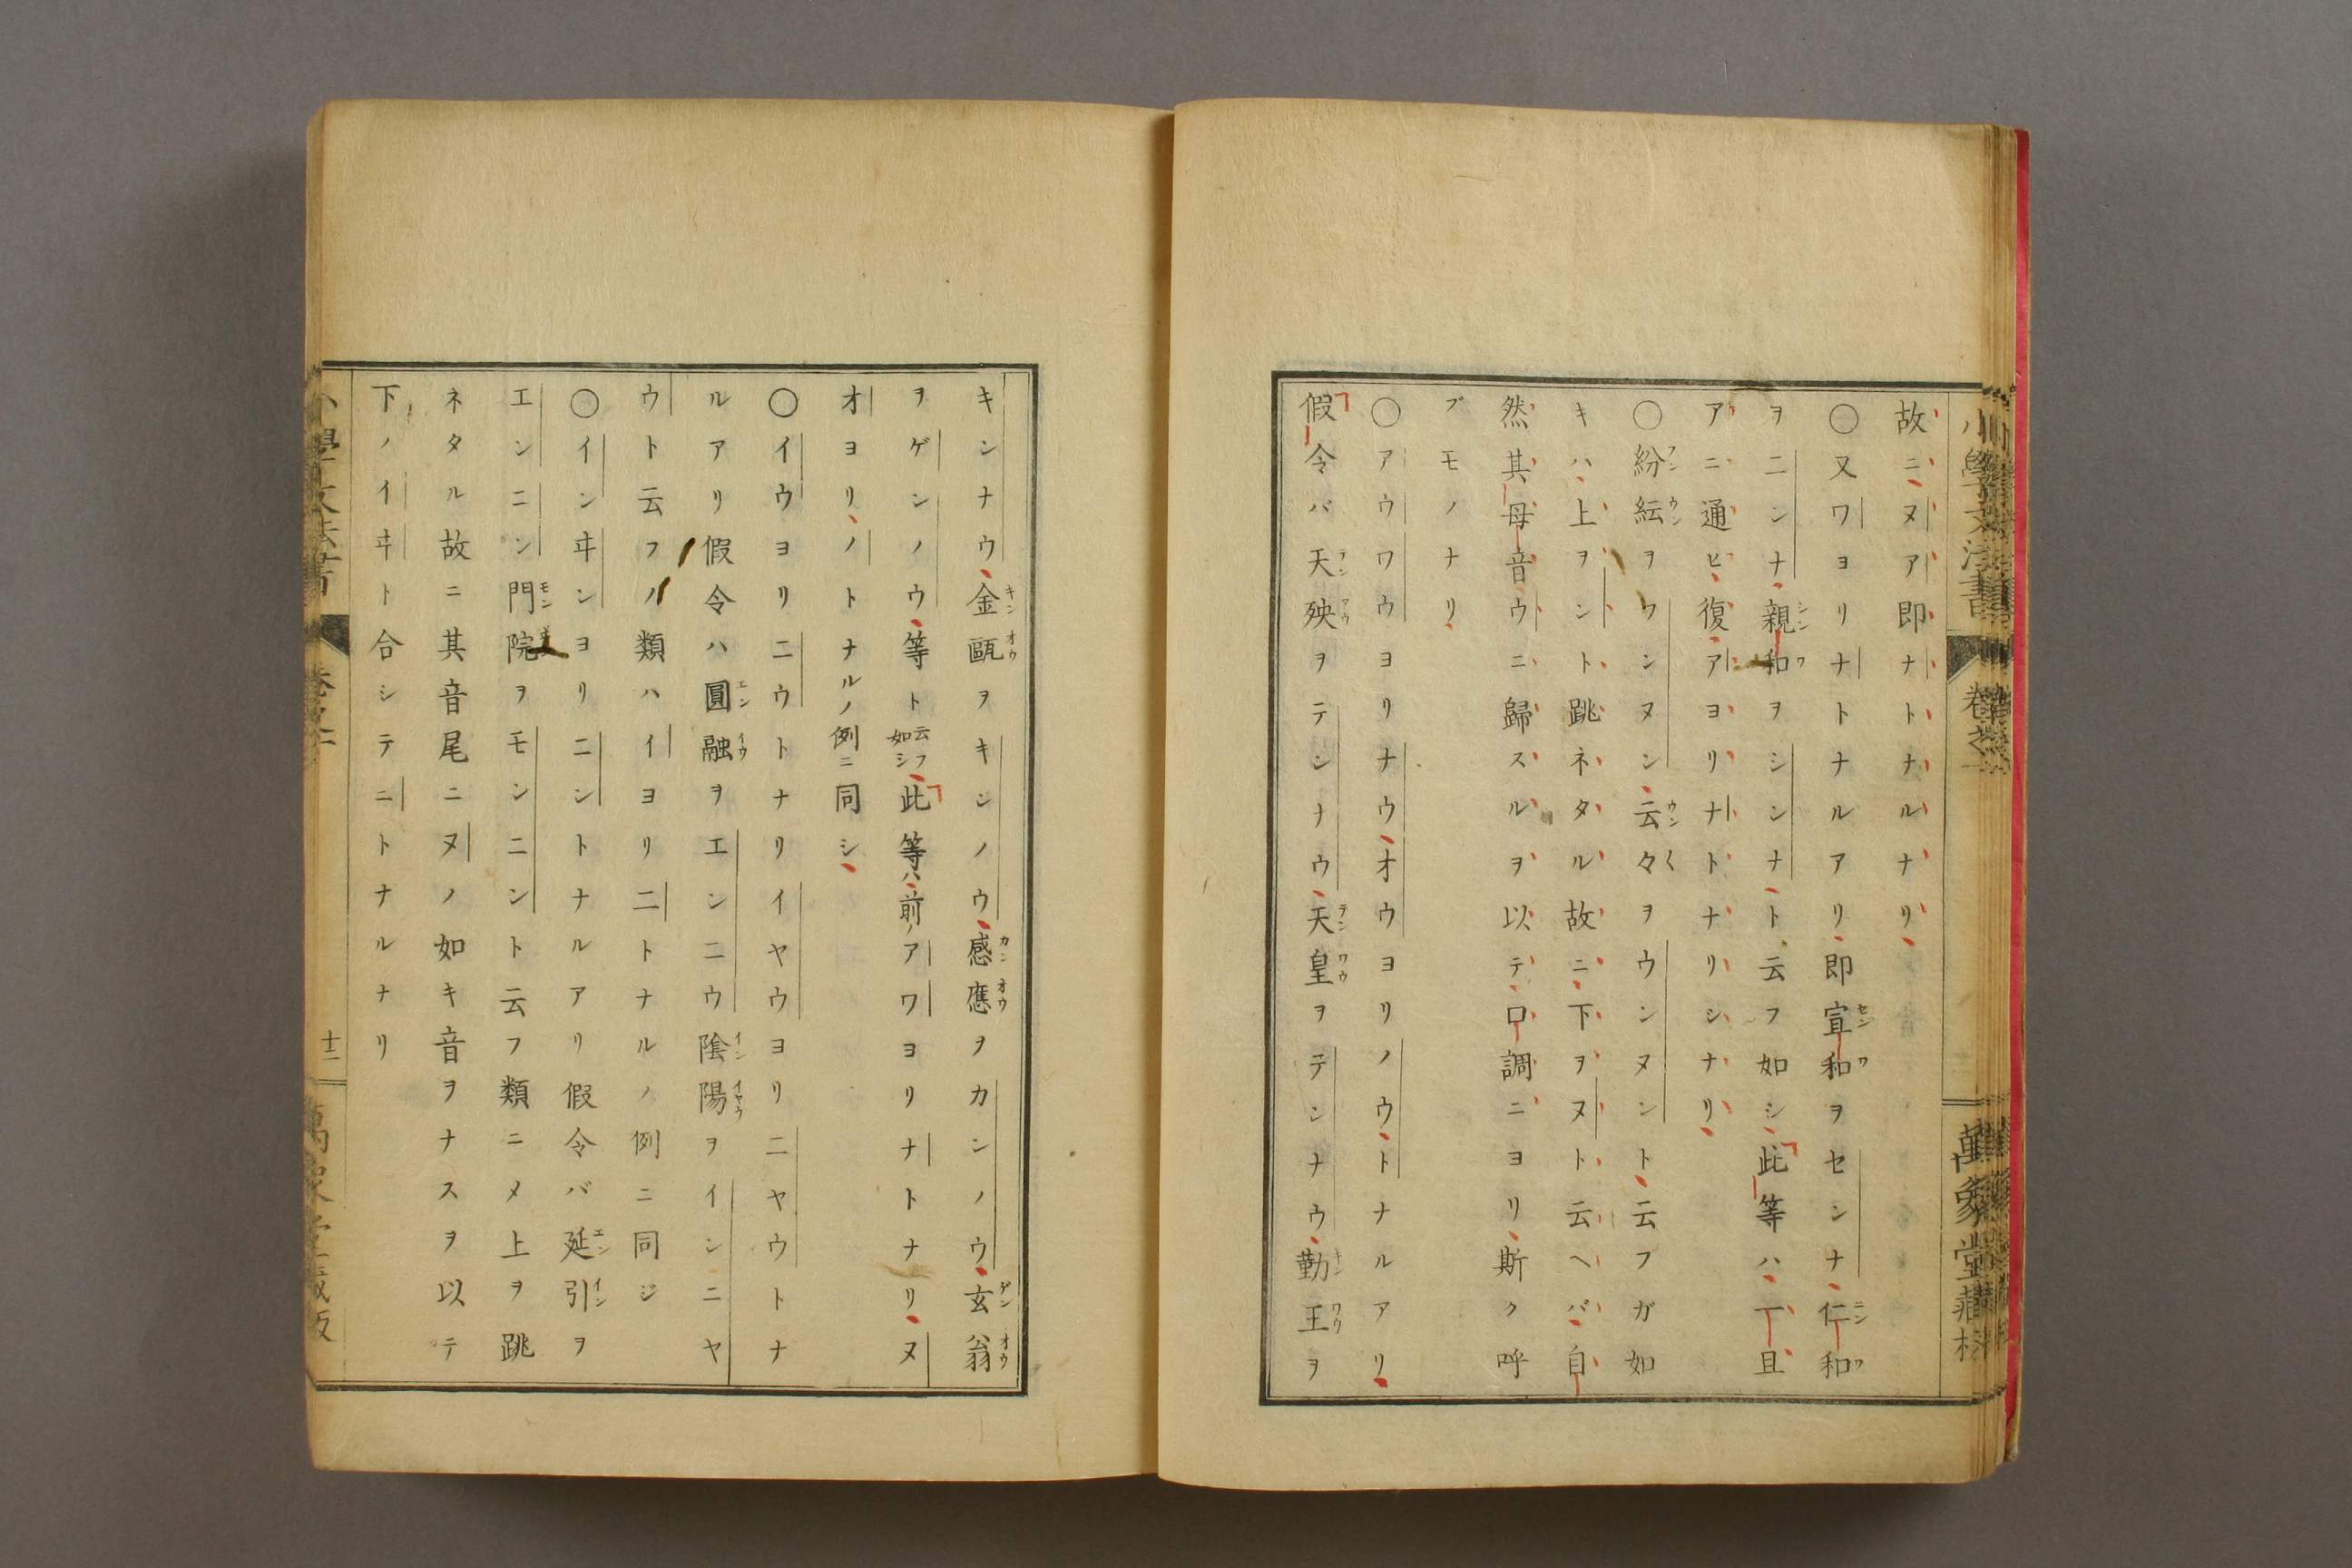 小學文法書
卷之一
萬象堂藏板
故ニヌア即ナトナルナリ
〇又ワヨリナトナルアリ即宣和ヲセンナ仁和
ヲニンナ親和ヲシンナト云フ如シ此等ハ一旦
アニ通ヒ復アヨリナトナリシナリ
〇紛紜ヲフンヌン云々ヲウンヌント云フガ如
キハ上ヲント跳ネタル故ニ下ヲヌト云ヘバ自
然其母音ウニ歸スルヲ以テ口調ニヨリ斯ク呼
ブモノナリ
〇アウワウヨリナウオウヨリノウトナルアリ
假令バ天殃ヲテンナウ天皇ヲテンナウ勤王ヲ
キンナウ金甌ヲキンノウ感應ヲカンノウ玄翁
ヲゲンノウ等ト云フ如シ此等ハ前ノアワヨリナトナリヌ
オヨリノトナルノ例ニ同シ
〇イウヨリニウトナリイヤウヨリニヤウトナ
ルアリ假令ハ圓融ヲエンニウ陰陽ヲインニヤ
ウト云フノ類ハイヨリニトナルノ例ニ同ジ
〇インヰンヨリニントナルアリ假令バ延引ヲ
エンニン門院ヲモンニント云フ類ニメ上ヲ跳
ネタル故ニ其音尾ニヌノ如キ音ヲナスヲ以テ
下ノイヰト合シテニトナルナリ
十二